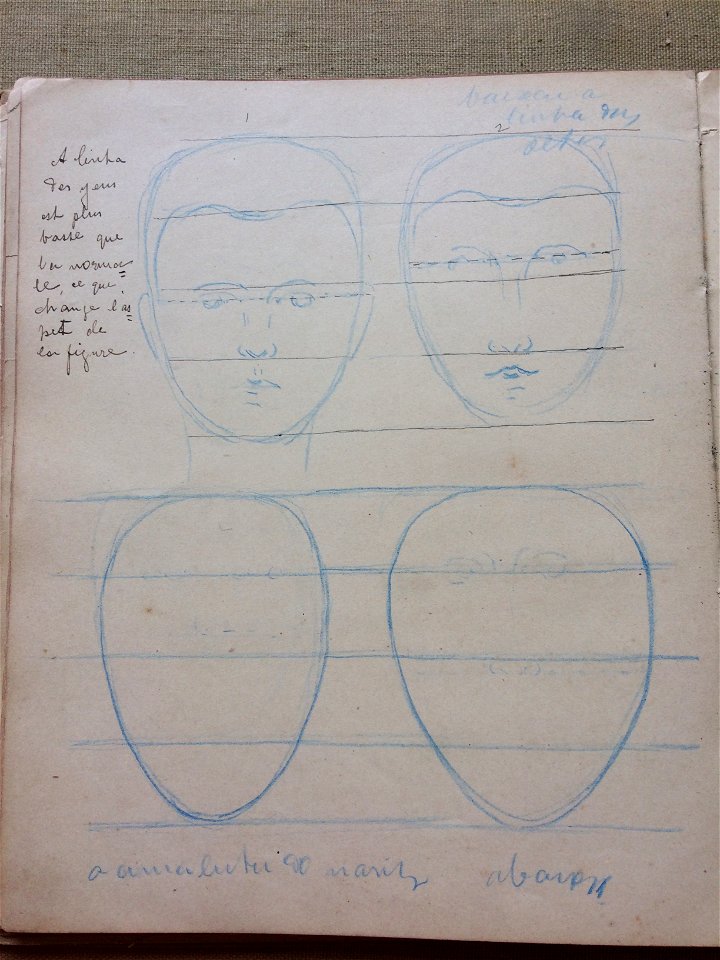 1
2
baixar a
linha dos
A linha
des yeux
est plus
basse que
la norma=
le, ce que
change l'as=
pect de
la figure.
nariz
abaixa